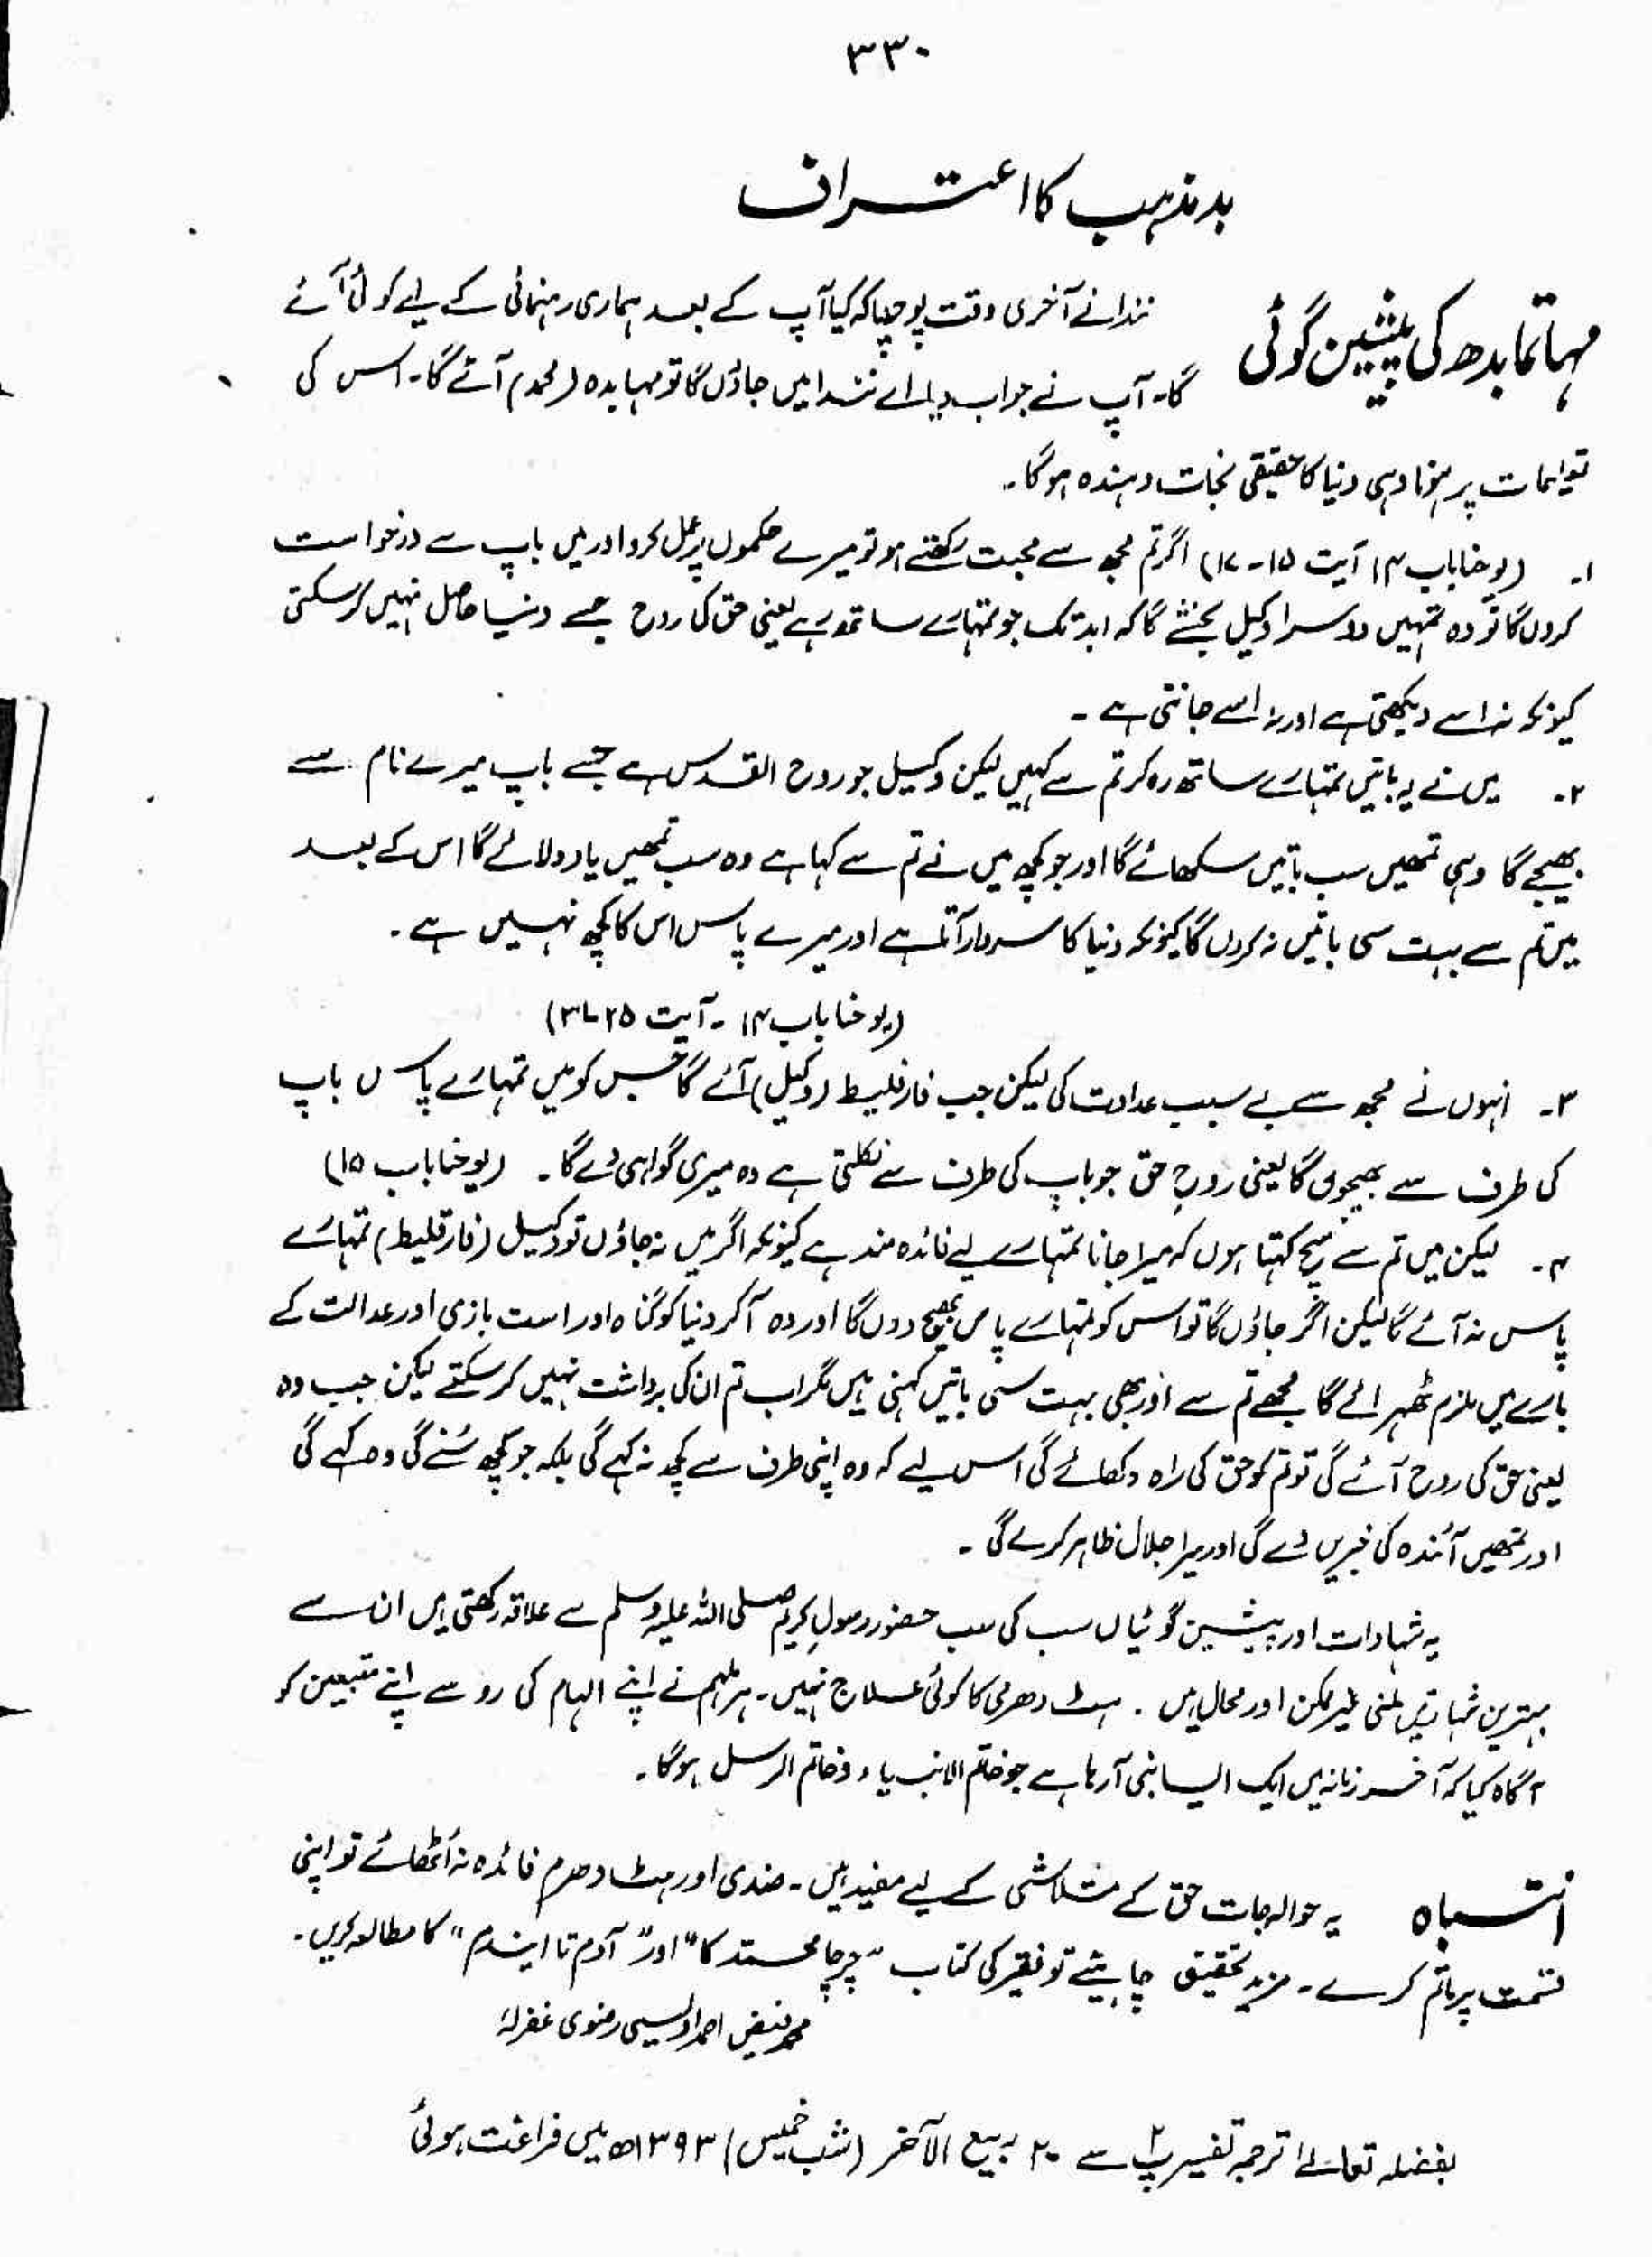 ۳۳۰
بدمذہب کا اعتراف
مہاتما بدھ کی پیشین گوئی
نندا نے آخری وقت پوچھا کہ کیا آپ کے بعد ہماری رہنمائی کے لیے کوئی آئے
گا۔ آپ نے جواب دیا۔ اے نندا میں جاؤں گا تو مہا بدہ (محمد) آئے گا۔ اس کی
تعلیمات پر ہونا وہی دنیا کا حقیقی نجات دہندہ ہوگا۔
۱۔ (یوحنا باب ۱۴ آیت ۱۵-۱۷) اگر تم مجھ سے محبت رکھتے ہو تو میرے حکموں پر عمل کرو اور میں باپ سے درخواست
کروں گا تو وہ تمہیں دوسرا وکیل بخشے گا کہ ابد تک جو تمہارے ساتھ رہے یعنی حق کی روح جسے دنیا حاصل نہیں کر سکتی
کیونکہ نہ اسے دیکھتی ہے اور نہ اسے جانتی ہے۔
۲۔ میں نے یہ باتیں تمہارے ساتھ رہ کر تم سے کہیں لیکن وکیل جو روح القدس ہے جسے باپ میرے نام سے
بھیجے گا وہی تمھیں سب باتیں سکھائے گا اور جو کچھ میں نے تم سے کہا ہے وہ سب تمھیں یاد دلائے گا اس کے بعد
میں تم سے بہت سی باتیں نہ کروں گا کیونکہ دنیا کا سردار آتا ہے اور میرے پاس اس کا کچھ نہیں ہے۔
(یوحنا باب ۱۴ ۔ آیت ۲۵ تا ۳۱)
۳۔ انہوں نے مجھ سے بے سبب عداوت کی لیکن جب فارقلیط (وکیل) آئے گا جس کو میں تمہارے پاس باپ
کی طرف سے بھیجوں گا یعنی روحِ حق جو باپ کی طرف سے نکلتی ہے وہ میری گواہی دے گا۔ (یوحنا باب ۱۵)
۴۔ لیکن میں تم سے سچ کہتا ہوں کہ میرا جانا تمہارے لیے فائدہ مند ہے کیونکہ اگر میں نہ جاؤں تو وکیل (فارقلیط) تمہارے
پاس نہ آئے گا لیکن اگر جاؤں گا تو اس کو تمہارے پاس بھیج دوں گا اور وہ آ کر دنیا کو گناہ اور راست بازی اور عدالت کے
بارے میں ملزم ٹھہرائے گا مجھے تم سے اور بھی بہت سی باتیں کہنی ہیں مگر اب تم ان کی برداشت نہیں کر سکتے لیکن جب وہ
یعنی حق کی روح آئے گی تو تم کو حق کی راہ دکھائے گی اس لیے کہ وہ اپنی طرف سے کچھ نہ کہے گی بلکہ جو کچھ سُنے گی وہ کہے گی
اور تمھیں آئندہ کی خبریں دے گی اور میرا جلال ظاہر کرے گی۔
یہ شہادات اور پیشین گوئیاں سب کی سب حضور رسول کریم صلی اللہ علیہ وسلم سے علاقہ رکھتی ہیں ان سے
بہترین شہادتیں ملنی غیر ممکن اور محال ہیں۔ ہٹ دھرمی کا کوئی علاج نہیں۔ ہر ملہم نے اپنے الہام کی رو سے اپنے متبعین کو
آگاہ کیا کہ آخر زمانہ میں ایک ایسا نبی آ رہا ہے جو خاتم الانبیاء و خاتم الرسل ہوگا۔
انتباہ یہ حوالہ جات حق کے متلاشی کے لیے مفید ہیں۔ ضدی اور ہٹ دھرم فائدہ نہ اُٹھائے تو اپنی
قسمت پر ماتم کرے۔ مزید تحقیق چاہیئے تو فقیر کی کتاب "چرچا محمد کا" اور "آدم تا ایندم" کا مطالعہ کریں۔
محمد فیض احمد اویسی رضوی غفرلہٗ
بفضلہ تعالیٰ ترجمہ تفسیر پ۲ سے ۲۰ ربیع الآخر (شب خمیس) ۱۳۹۳ھ میں فراغت ہوئی